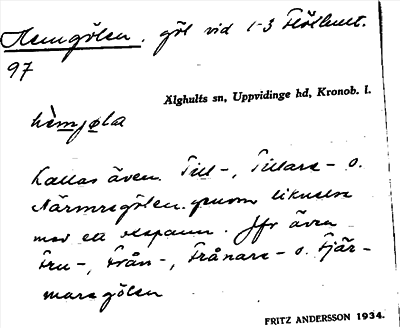 Hemgölen. göl vid 1-3 Flöthult.
97
Älghults sn, Uppvidinge hd, Kronob. l.
hèmjøla
Kallas även Till-, Tillare- o.
Närmregölen genom liknelse
med ett oxspann. Jfr även
Fru-, Från-, Frånare- o. Fjär-
mare gölen
FRITZ ANDERSSON 1934.